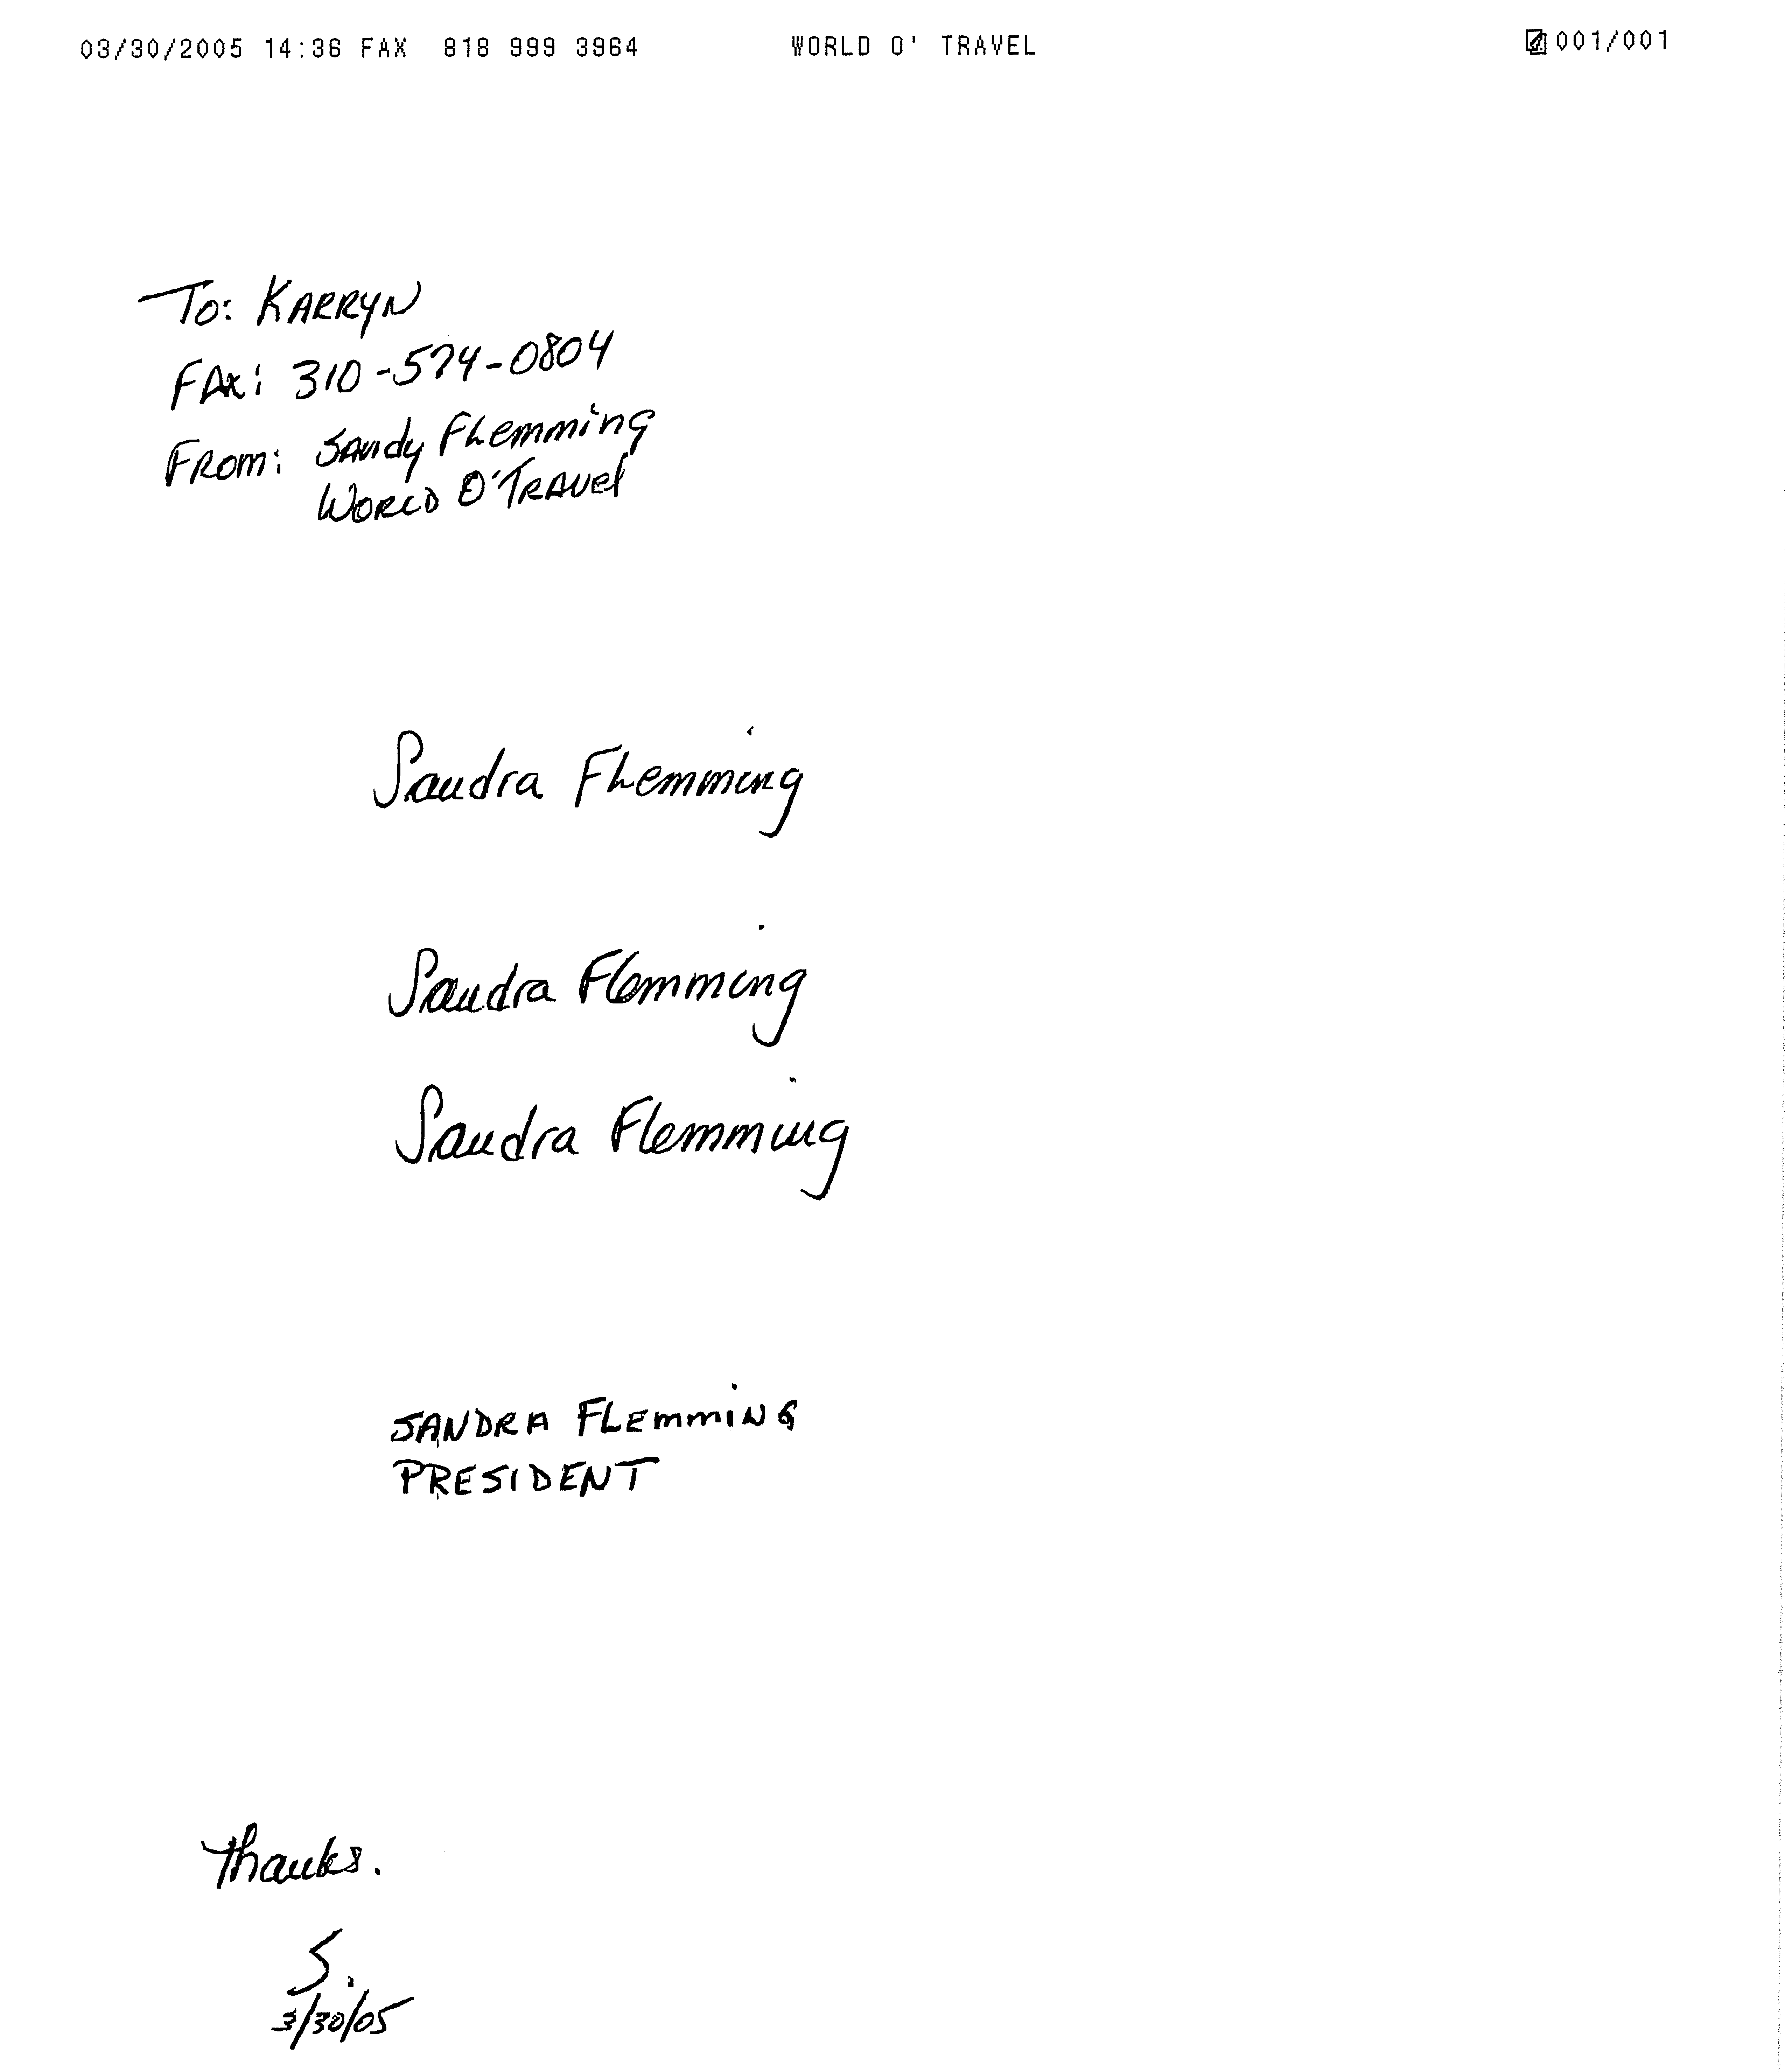 03/30/2005 14:36 FAX 818 999 3964 WORLD O' TRAVEL 001/001
To: KARRYN
FAX: 310-574-0804
FROM: Sandy Flemming
WORLD O'TRAVEL
Sandra Flemming
Sandra Flemming
Sandra Flemming
SANDRA FLEMMING
PRESIDENT
Thanks.
S.
3/30/05